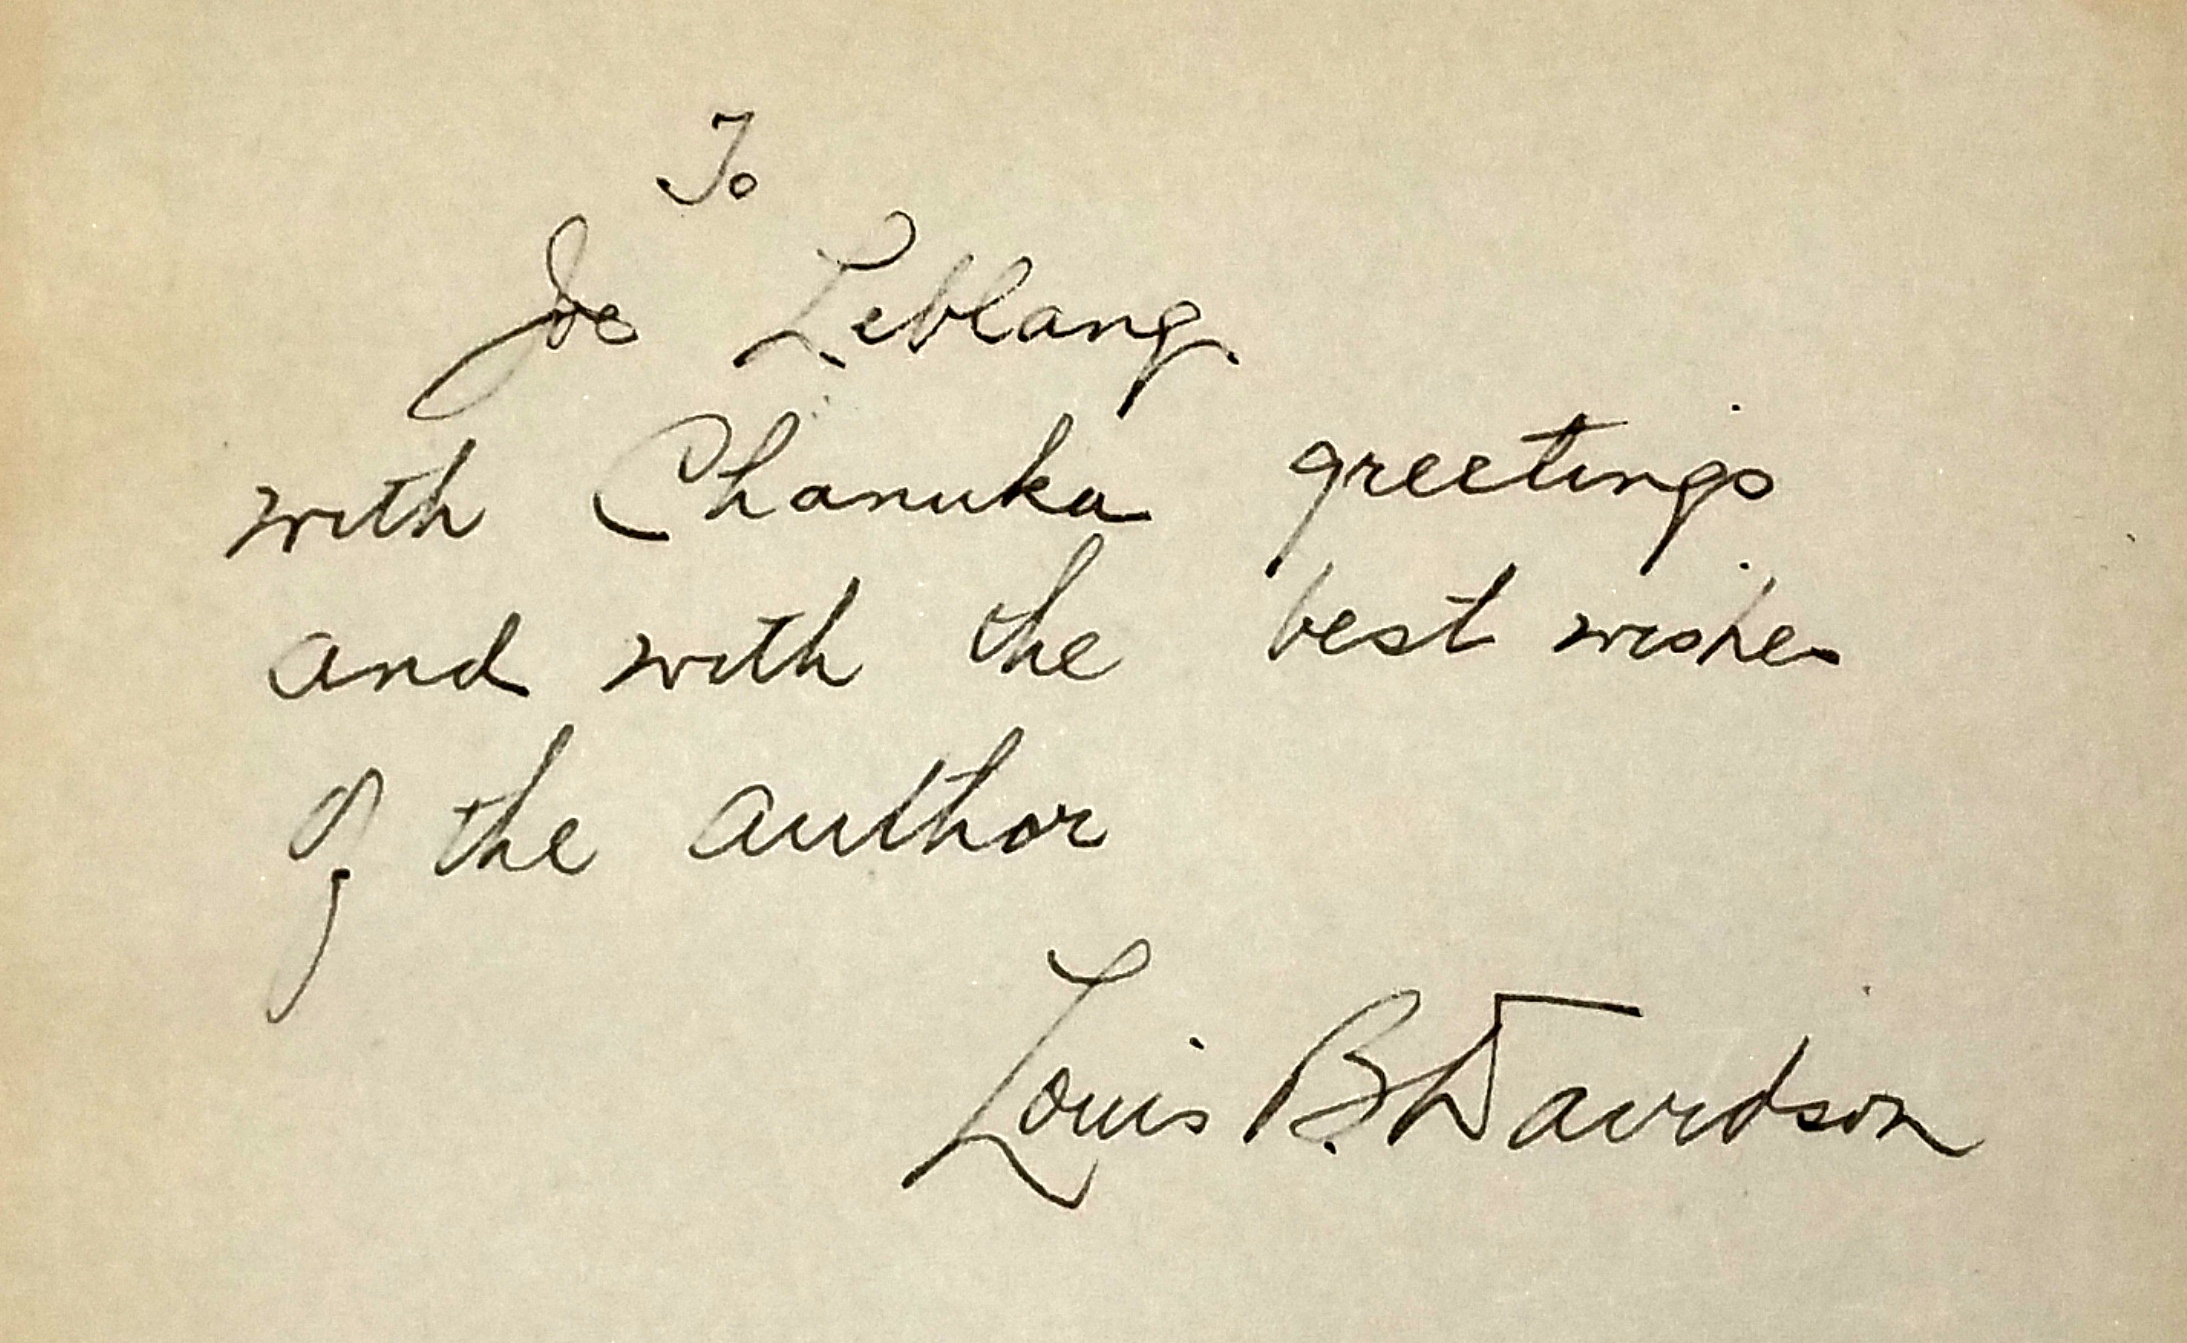 To
Joe Leblang
with Chanuka greetings
and with the best wishes
of the author
Louis B. Davidson